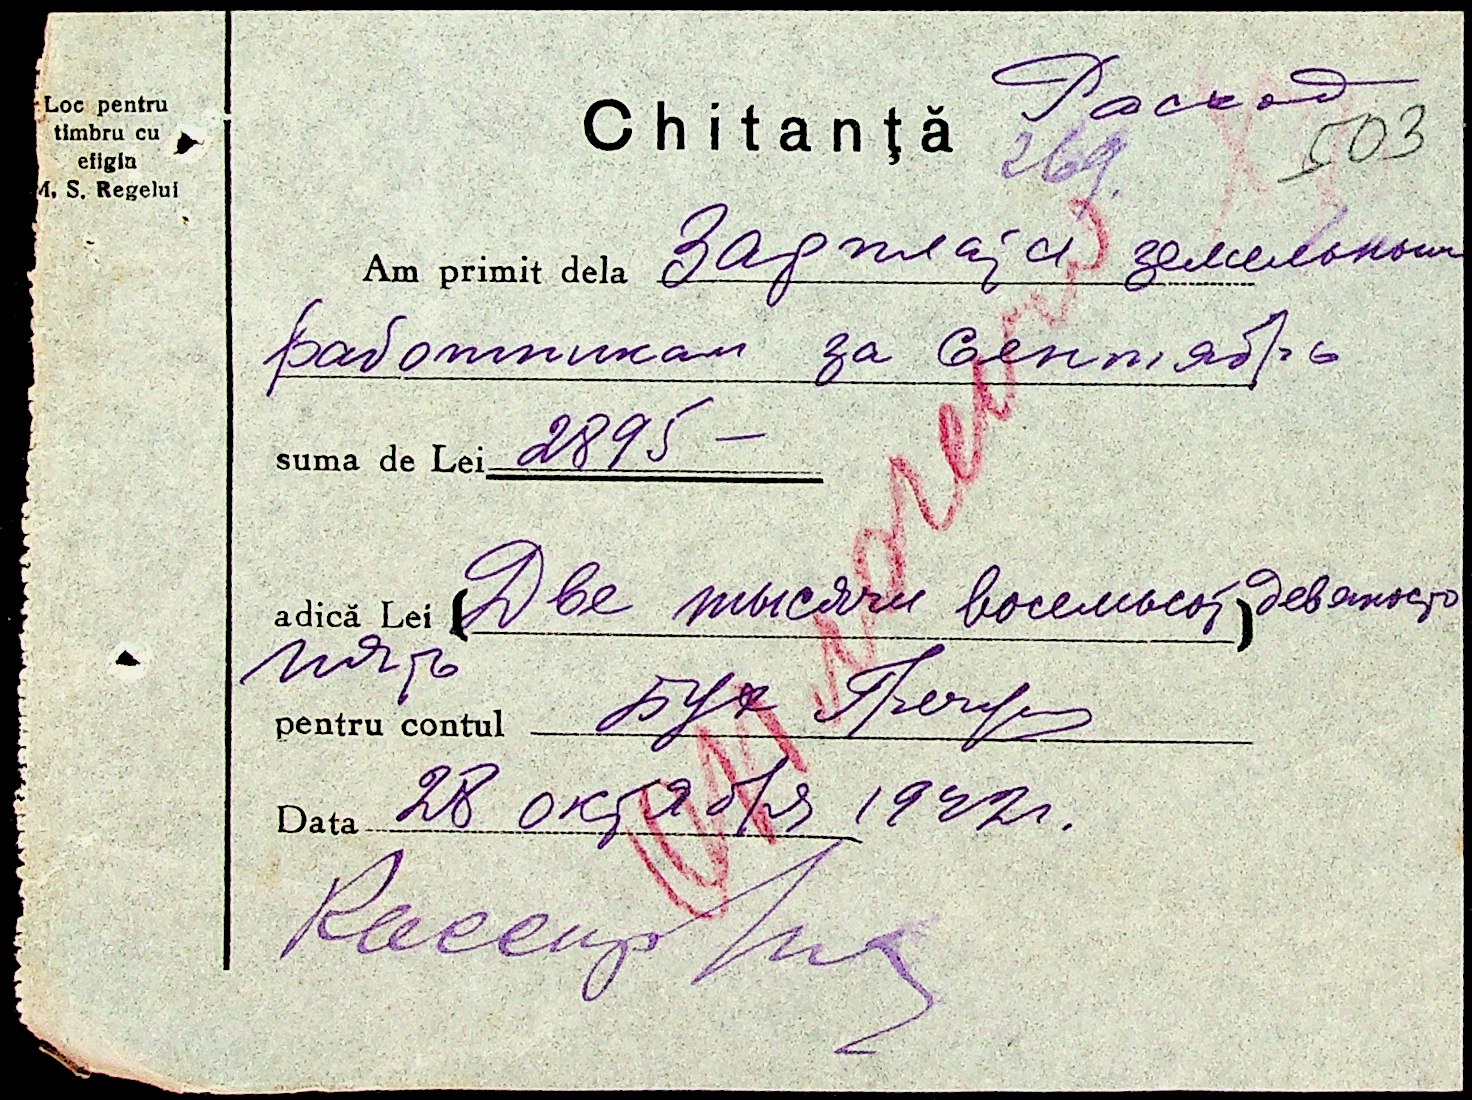 Loc pentru
timbru cu
efigia
M. S. Regelui
Расход
Chitanţă
269.
503
Am primit dela Зарплата земельным
работникам за Сентябрь
suma de Lei 2895 —
adică Lei (Две тысячи восемьсот) девяносто
пять
pentru contul Бух
Data 28 октября 1942 г.
Кассир